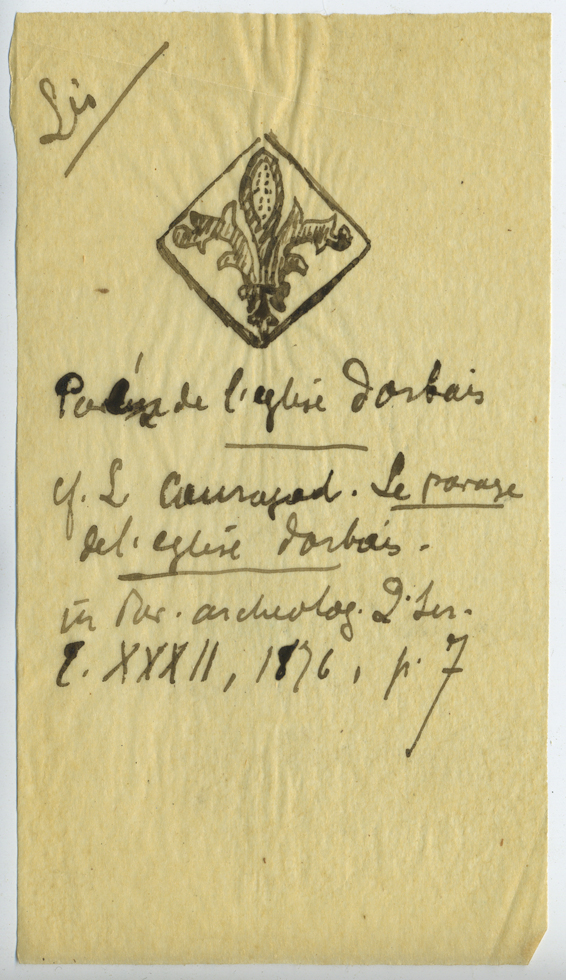 Lis
de l'eglise d'orbais
cf. L Courajod. Le pavage
de l'eglise d'orbais.
in Rev. archeolog. 2. Ser.
t. XXXII, 1876, p. 7